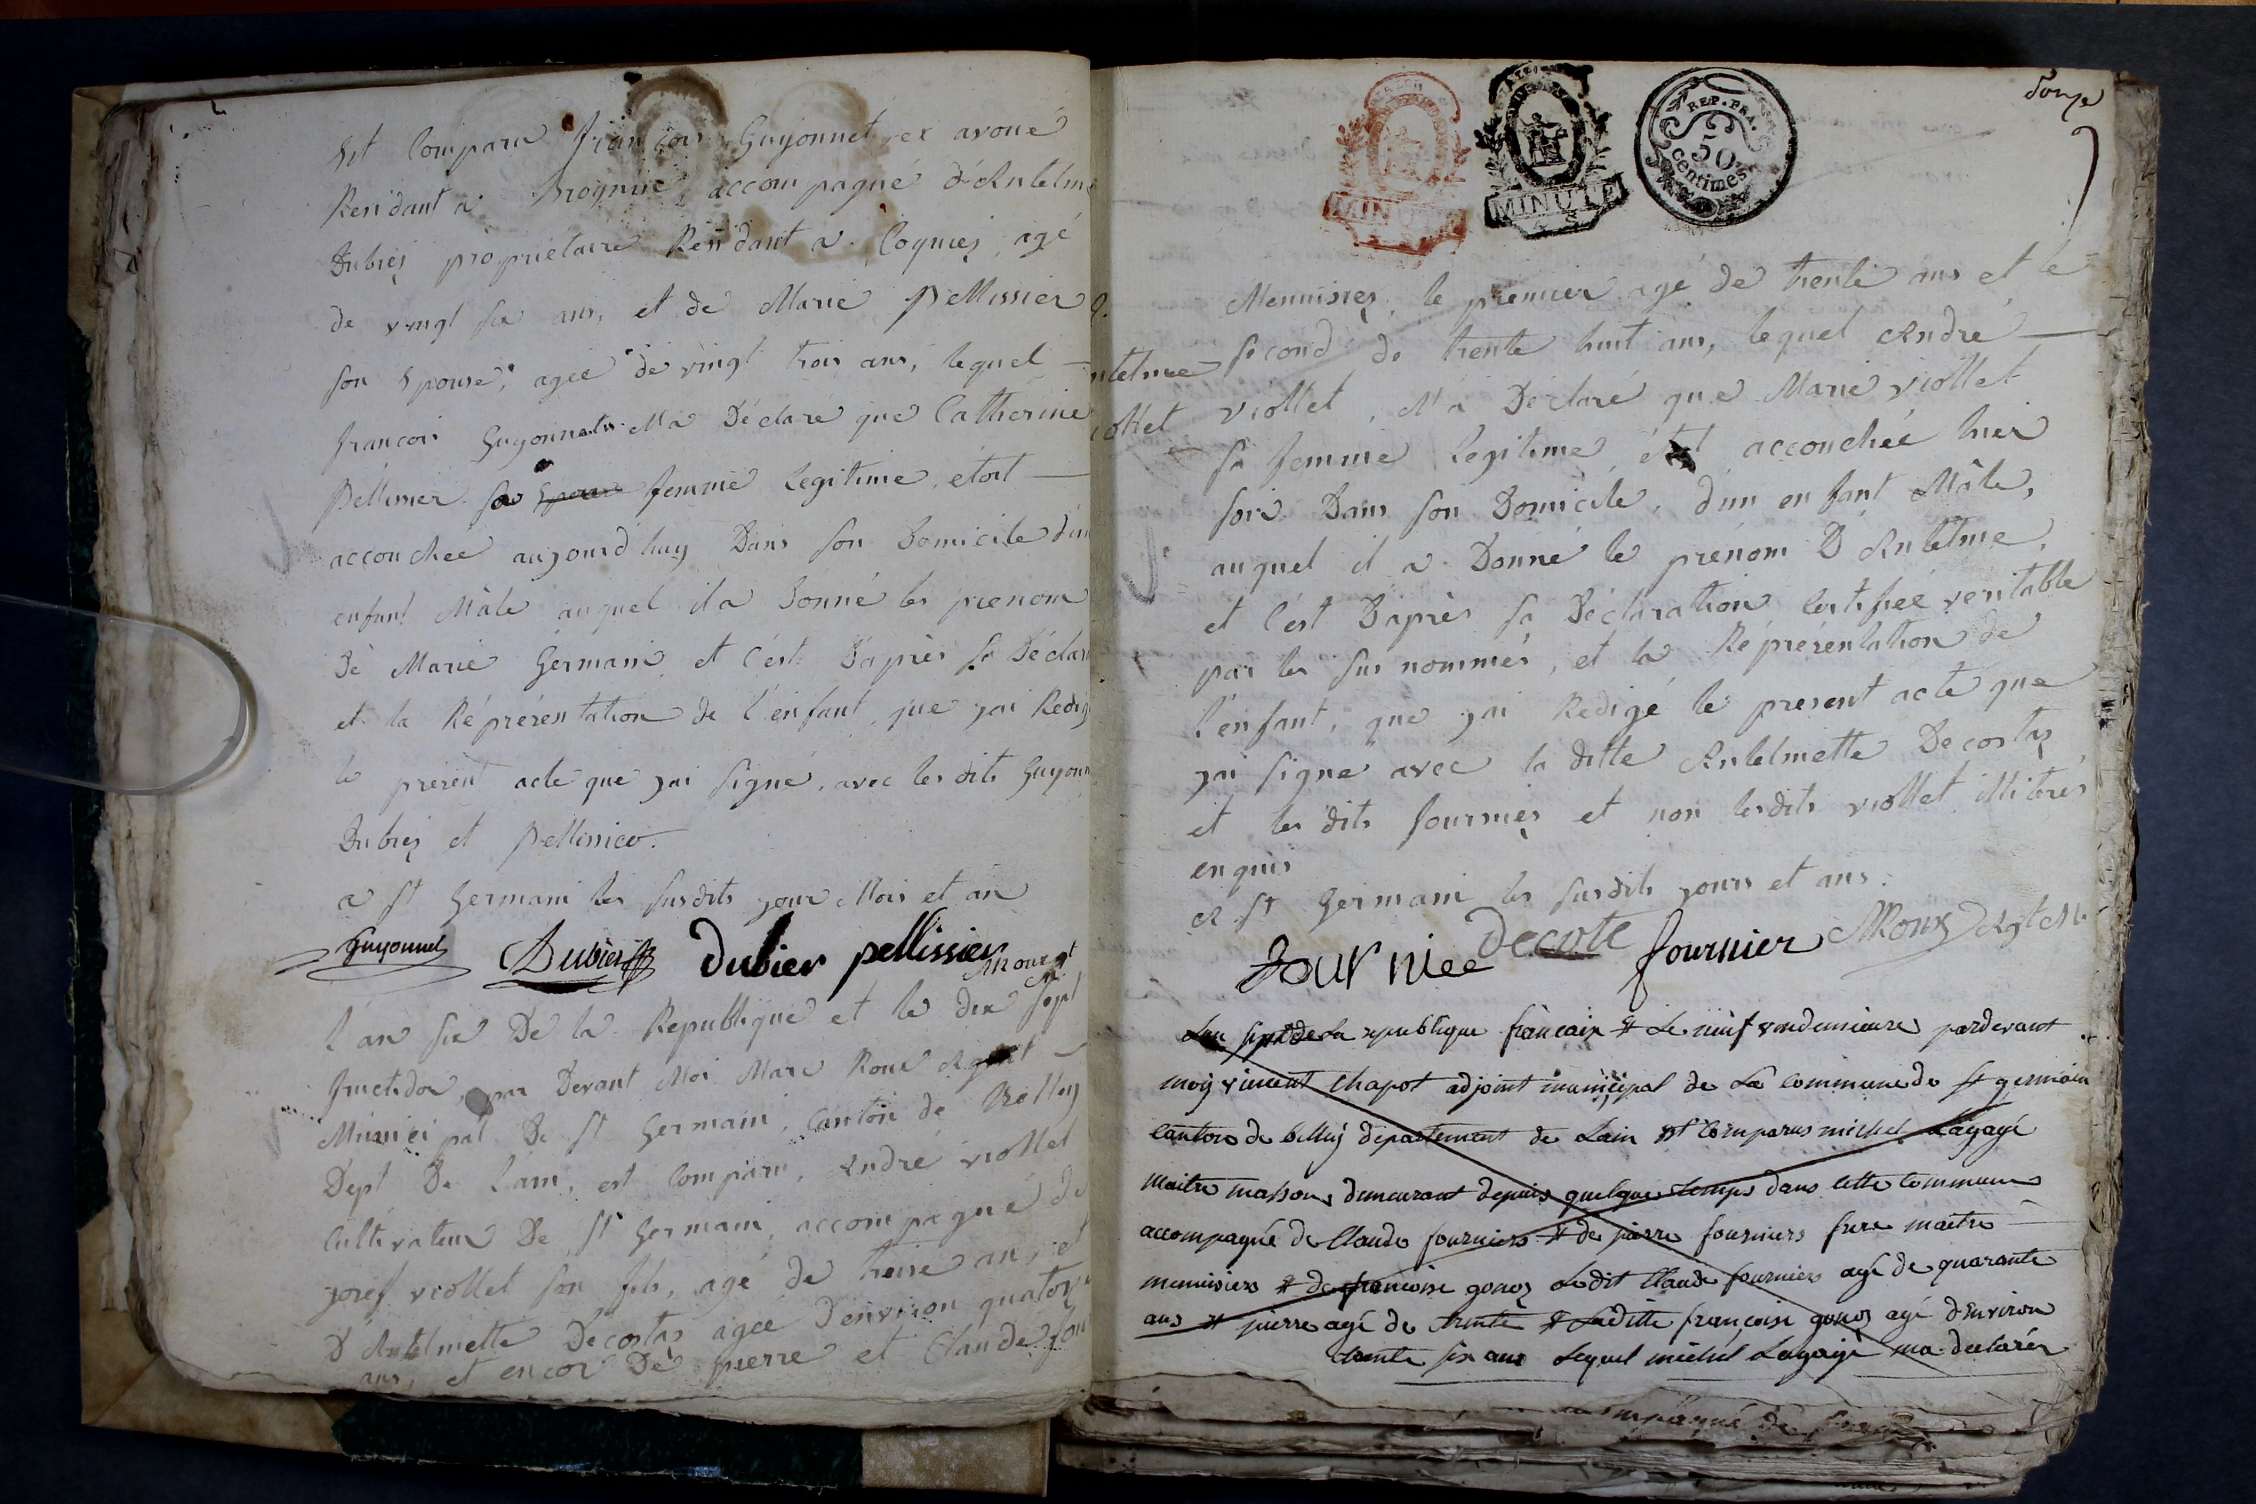 Est Comparu françois Guyonnet ex avoué
Residant a Brognin, accompagné d'Antelme
Dubier propriétaire Residant a Cognier, agé
de vingt six ans, et de Marie Pellissier
son Epouse, agée de vingt trois ans, lequel
françois Guyonnet M'a Déclaré que Catherine
Pellissier sa Epouse femme Legitime, etoit
accouchée aujourd'huy Dans son Domicile d'un
enfant Mâle auquel il a Donné les prenom
De Marie Germain, et c'est D'après sa Déclar
et la Réprésentation de l'enfant, que jai Redig
le présent acte que jai signé, avec les dits Guyonn
Dubier et Pellissier.
a St Germain les susdits jour Mois et an
Guyonnet Dubier Dubier pellissier
MRoux agt
L'an six De la Republique et le dix sept
fructidor, par Devant Moi Marc Roux Agent
Municipal De St Germain, Canton de Belley
Dept De L'ain, est Comparu, André viollet
Cultivateur De St Germain, accompagné de
Josef viollet son fils, agé de treise ans, et
D'Antelmette Decostas agée D'environ quatorze
ans, et encor De pierre et Claude fou
Douze
REP. FRA.
50
centimes
MINUTE
MINUTE
Menuisier, le premier agé de trente ans et le
second de trente huit ans, lequel André
viollet, M'a Declaré que Marie viollet
sa femme Legitime, étoit accouchée hier
soir Dans son Domicile, d'un enfant Mâle,
auquel il a Donné le prénom D'Antelme,
et c'est D'après sa Déclaration certifiée veritable
par les sus nommés, et la Réprésentation de
l'enfant, que jai Redigé le present acte que
jai signé avec la ditte Antelmette Decostas
et les dits fournier et non lesdits viollet illiterés
enquis
A St Germain les susdits jours et ans.
fournier decote fournier MRoux Agt M.
Lan sept de La republique francaise & Le neuf vendemiaire pardevant
moy vincent Chapot adjoint municipal de La commune de st germain
canton de belley département de Lain est Comparus michel Lagagé
maitre masson, demeurant depuis quelque temps dans cette Commune
accompagné de Claude fourniers & de pierre fourniers frere maitre
menuisiers & de francoise gonoz Ledit Claude fourniers agé de quarante
ans & pierre agé de trente & Laditte françoise gonoz agé denviron
trente six ans Lequel michel Lagagé ma declarér